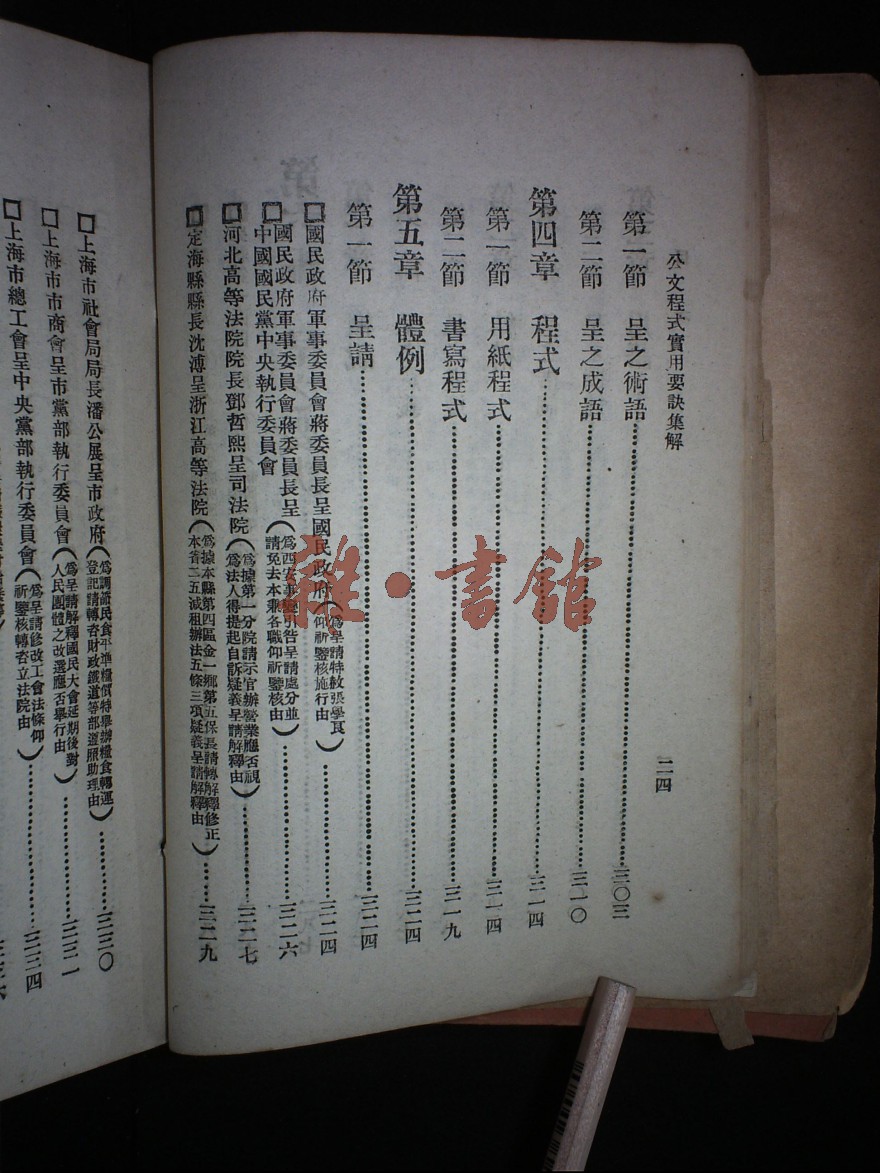 公文程式實用要訣集解
二四
第一節 呈之術語……三〇三
第二節 呈之成語……三一〇
第四章 程式……三一四
第一節 用紙程式……三一四
第二節 書寫程式……三一九
第五章 體例……三二四
第一節 呈請……三二四
□國民政府軍事委員會蔣委員長呈國民政府(為呈請特赦張學良仰祈鑒核施行由)……三二四
□國民政府軍事委員會蔣委員長呈中國國民黨中央執行委員會(為西安事變引咎呈請處分並請免去本兼各職仰祈鑒核由)……三二六
□河北高等法院院長鄧哲熙呈司法院(為據第一分院請示官辦營業應否視為法人得提起自訴疑義呈請解釋由)……三二七
□定海縣縣長沈溥呈浙江高等法院(為據本縣第四區金一鄉第五保長請轉解釋修正本省二五減租辦法五條三項疑義呈請解釋由)……三二九
□上海市社會局局長潘公展呈市政府(為調節民食平準糧價特舉辦糧食轉運登記請轉咨財政鐵道等部遵照助理由)……三三〇
□上海市商會呈市黨部執行委員會(為呈請解釋國民大會延期後對人民團體之改選應否舉行由)……三三一
□上海市總工會呈中央黨部執行委員會(為呈請修改工會法條仰祈鑒核轉咨立法院由)……三三四
雜·書館